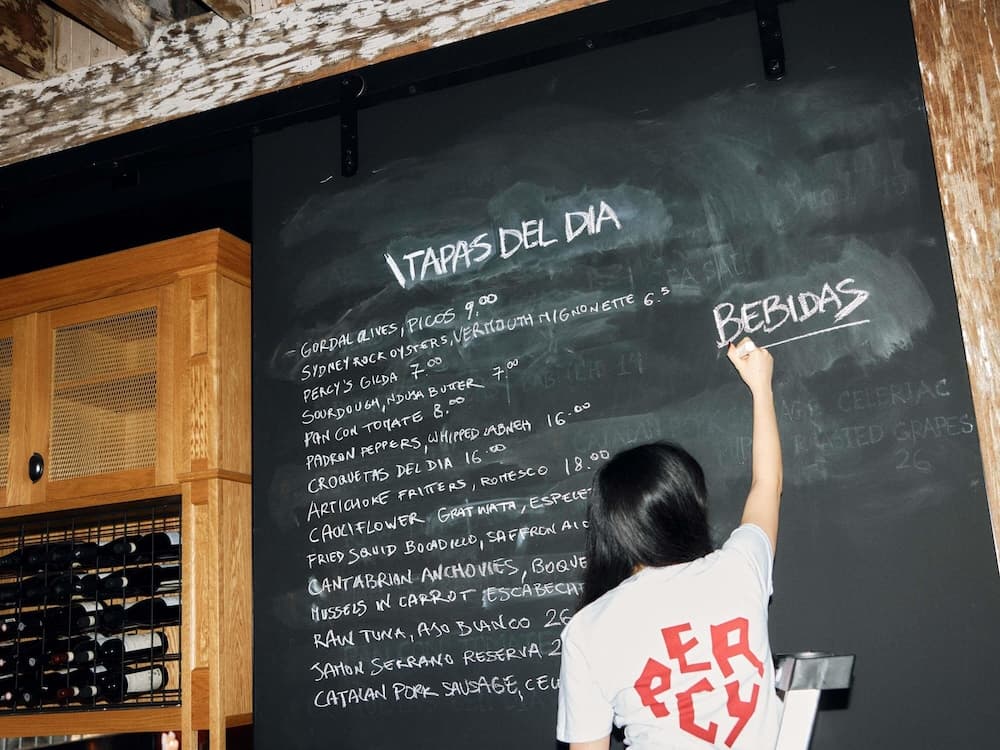 TAPAS DEL DIA
GORDAL OLIVES, PICOS 9.00
SYDNEY ROCK OYSTERS, VERMOUTH MIGNONETTE 6.5
PERCY'S GILDA 7.00
SOURDOUGH, NDUSA BUTTER 7.00
PAN CON TOMATE 8.00
PADRON PEPPERS, WHIPPED LABNEH 16.00
CROQUETAS DEL DIA 16.00
ARTICHOKE FRITTERS, ROMESCO 18.00
CAULIFLOWER GRATINATA, ESPELET
FRIED SQUID BOCADILLO, SAFFRON AIO
CANTABRIAN ANCHOVIES, BOQUE
MUSSELS IN CARROT ESCABECH
RAW TUNA, AJO BLANCO 26
JAMON SERRANO RESERVA 2
CATALAN PORK SAUSAGE, CEL
BEBIDAS
CELERIAC
GRAPES
26
PERCY